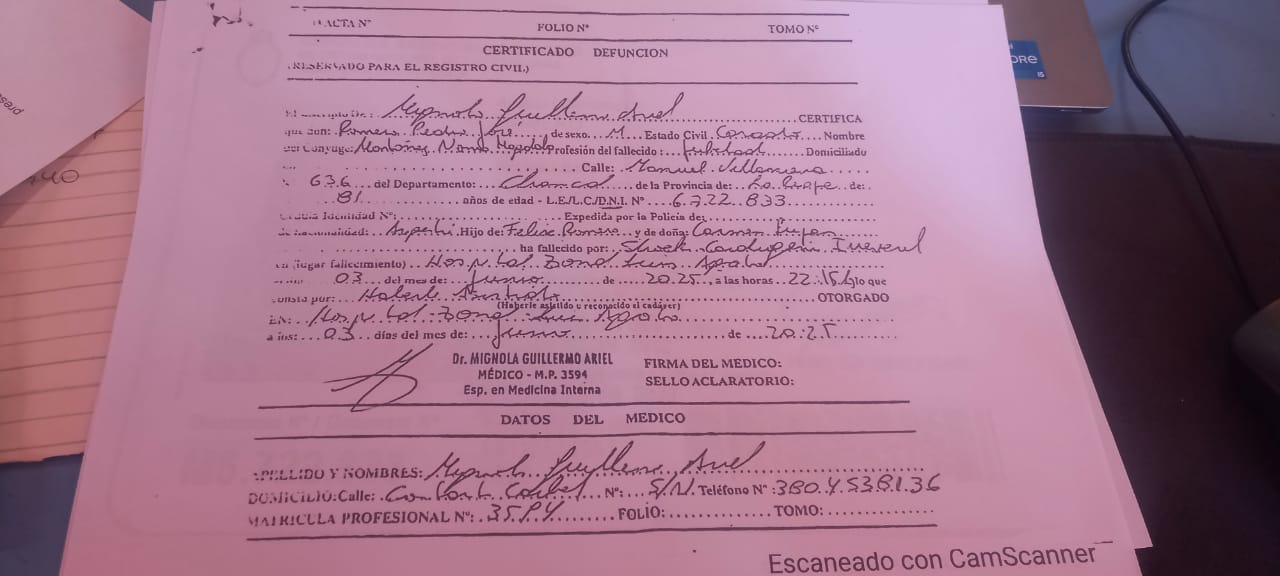 ACTA Nº FOLIO Nº TOMO Nº
CERTIFICADO DEFUNCION
(RESERVADO PARA EL REGISTRO CIVIL)
Guillermo Ariel CERTIFICA
que don: Romero Pedro José de sexo M Estado Civil Casado Nombre
del Conyuge: Profesión del fallecido: Jubilado Domiciliado
Calle: Manuel
636 del Departamento: de la Provincia de: La Rioja de:
81 años de edad - L.E/L.C/D.N.I. Nº 6.722.833
Cédula Identidad Nº: Expedida por la Policía de:
de nacionalidad: Hijo de: Felix Romero y de doña: Carmen
ha fallecido por: Shock
en (lugar fallecimiento) Hospital Luis Agote
03 del mes de: Junio de 2025, a las horas 22:15 lo que
consta por: Haberle Asistido OTORGADO
(Haberle asistido o reconocido el cadáver)
EN: Hospital Luis Agote
a los: 03 días del mes de: Junio de 2025
Dr. MIGNOLA GUILLERMO ARIEL
MÉDICO - M.P. 3594
Esp. en Medicina Interna
FIRMA DEL MEDICO:
SELLO ACLARATORIO:
DATOS DEL MEDICO
APELLIDO Y NOMBRES: Mignola Guillermo Ariel
DOMICILIO: Calle: Nº: S/N. Teléfono Nº: 3804538136
MATRICULA PROFESIONAL Nº: 3594 FOLIO: TOMO:
Escaneado con CamScanner